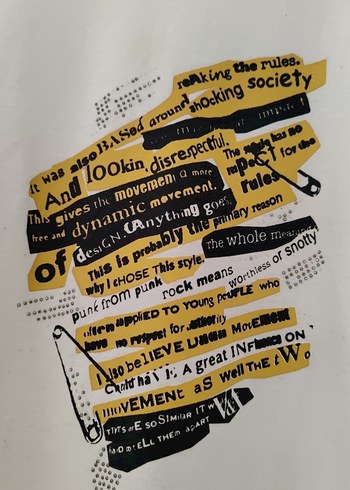 reaking the rules.
It was also BASed around shocking society
And lOOkin disrespectful.
The work has no
respect for the
rules
This gives the movement a more
free and dynamic movement.
of design. (Anything goes
This is probably the primary reason
why I cHOSE This style.
The whole meaning
punk from punk rock means worthless or snotty
term applied to YOUNG PeoPLE who
have no respect for authority
I also belIEVE URBAN MovEMENT
Could haVE A great INFluence ON
mOVEMENT aS Well THe tWo
THEY aRE SO SIMilAR IT W
TELL THEM APART